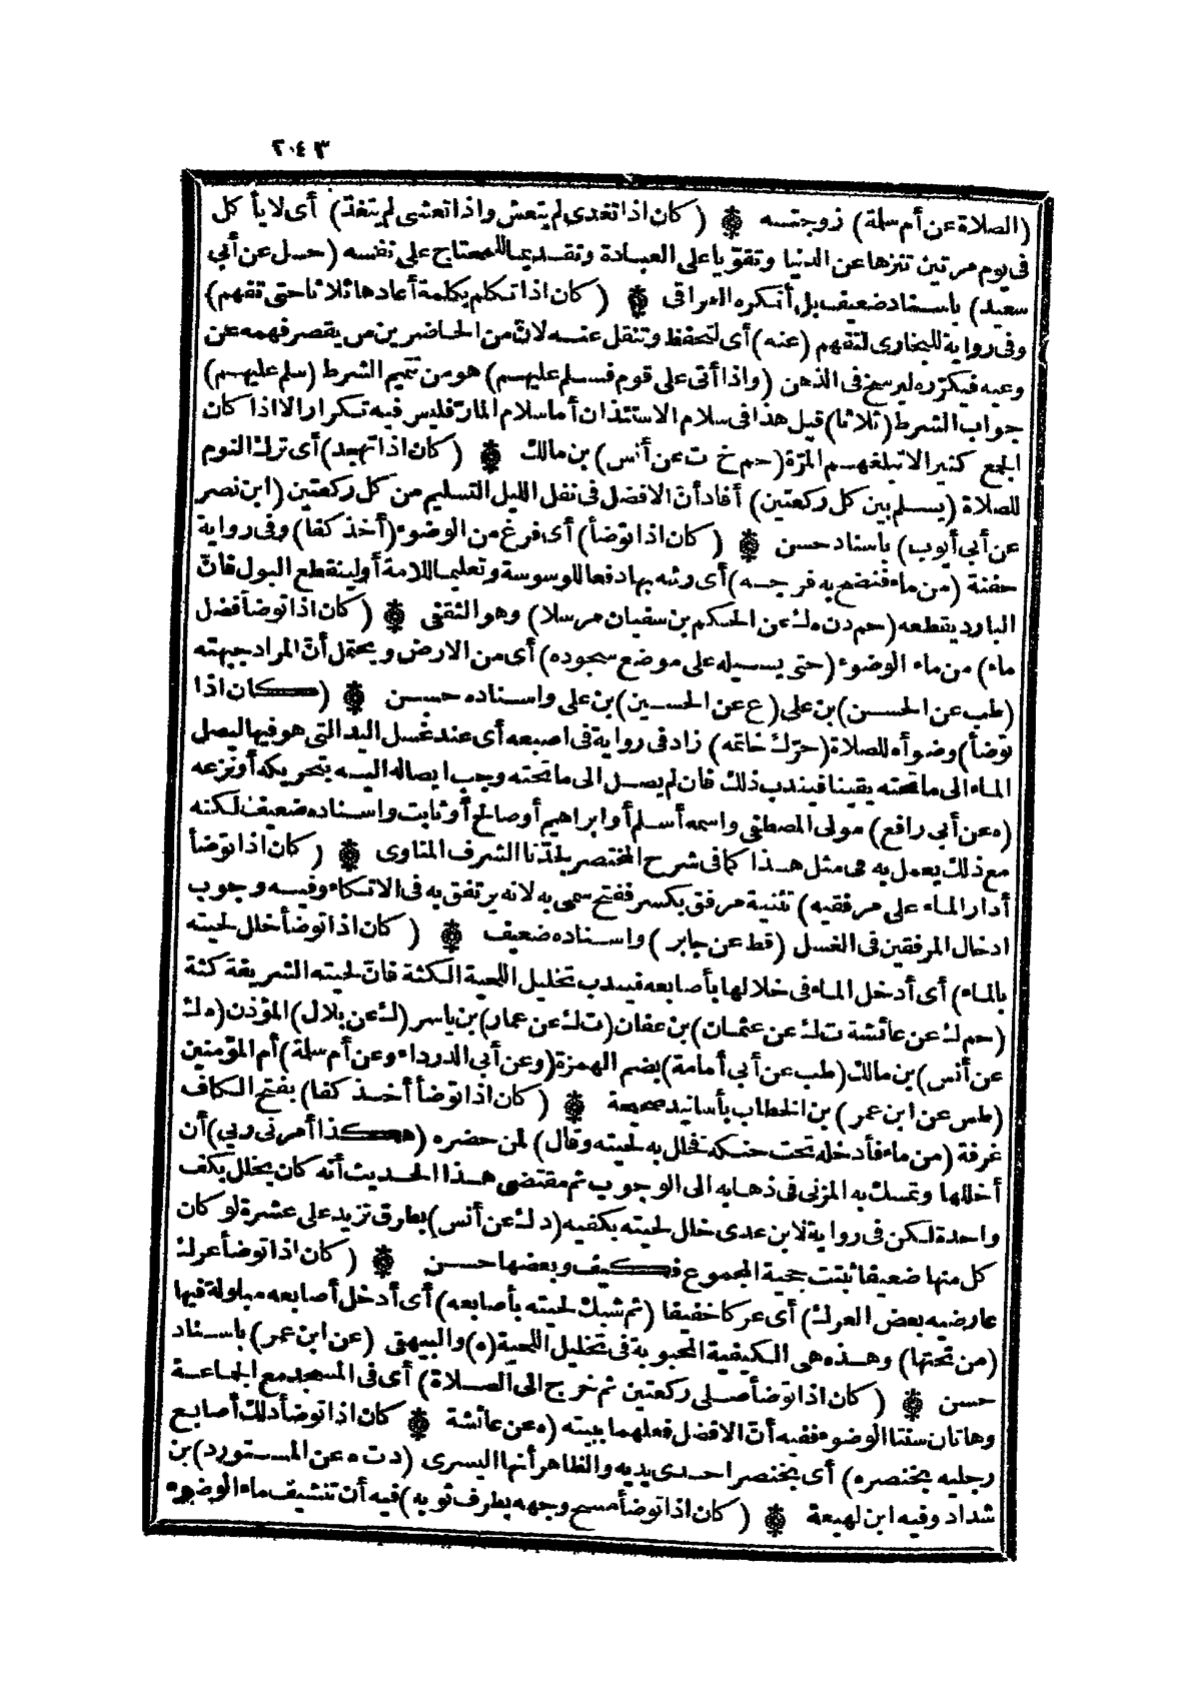 ٢٠٤٣
(الصلاة عن أم سلمة) زوجته ۞ (كان اذا تغدى لم يتعش واذا تعشى لم يتغد) أى لا يأكل
فى يوم مرتين تنزها عن الدنيا وتقويا على العبادة وتقديما للمحتاج على نفسه (حل عن أبي
سعيد) باسناد ضعيف بل أنكره العراقى ۞ (كان اذا تكلم بكلمة أعادها ثلاثا حتى تفهم)
وفى رواية للبخارى لتفهم (عنه) أى لتحفظ وتنقل عنه لان من الحاضرين من يقصر فهمه عن
وعيه فيكرره ليرسخ فى الذهن (واذا أتى على قوم فسلم عليهم) هو من تتميم الشرط (سلم عليهم)
جواب الشرط (ثلاثا) قيل هذا فى سلام الاستئذان أما سلام المار فليس فيه تكرار الا اذا كان
الجمع كثيرا لا تبلغهم المرة (حم خ ت عن أنس) بن مالك ۞ (كان اذا تهجد) أى ترك النوم
للصلاة (يسلم بين كل ركعتين) أفاد أن الافضل فى نفل الليل التسليم من كل ركعتين (ابن نصر
عن أبي أيوب) باسناد حسن ۞ (كان اذا توضأ) أى فرغ من الوضوء (أخذ كفا) وفى رواية
حفنة (من ماء فنضح به فرجه) أى رشه بها دفعا للوسوسة وتعليما للامة أو لينقطع البول فان
البارد يقطعه (حم د ن ه ك عن الحكم بن سفيان مرسلا) وهو الثقفى ۞ (كان اذا توضأ فضل
ماء) من ماء الوضوء (حتى يسيله على موضع سجوده) أى من الارض ويحتمل أن المراد جبهته
(طب عن الحسن) بن على (ع عن الحسين) بن على واسناده حسن ۞ (كان اذا
توضأ) وضوأه للصلاة (حرك خاتمه) زاد فى رواية فى اصبعه أى عند غسل اليد التى هو فيها ليصل
الماء الى ما تحته يقينا فيندب ذلك فان لم يصل الى ما تحته وجب ايصاله اليه بتحريكه أو نزعه
(ه عن أبي رافع) مولى المصطفى واسمه أسلم أو ابراهيم أو صالح أو ثابت واسناده ضعيف لكنه
مع ذلك يعمل به فى مثل هذا كما فى شرح المختصر لجدنا الشرف المناوى ۞ (كان اذا توضأ
أدار الماء على مرفقيه) تثنية مرفق بكسر ففتح سمى به لانه يرتفق به فى الاتكاء وفيه وجوب
ادخال المرفقين فى الغسل (قط عن جابر) واسناده ضعيف ۞ (كان اذا توضأ خلل لحيته
بالماء) أى أدخل الماء فى خلالها بأصابعه فيندب تخليل اللحية الكثة فان لحيته الشريفة كثة
(حم ك عن عائشة ت ك عن عثمان) بن عفان (ت ك عن عمار) بن ياسر (ك عن بلال) المؤذن (ه ك
عن أنس) بن مالك (طب عن أبي أمامة) بضم الهمزة (وعن أبي الدرداء وعن أم سلمة) أم المؤمنين
(طس عن ابن عمر) بن الخطاب بأسانيد صحيحة ۞ (كان اذا توضأ أخذ كفا) بفتح الكاف
غرفة (من ماء فأدخله تحت حنكه فخلل به لحيته وقال) لمن حضره (هكذا أمرنى ربي) أن
أخللها وتمسك به المزنى فى ذهابه الى الوجوب ثم مقتضى هذا الحديث أنه كان يخلل بكف
واحدة لكن فى رواية لابن عدى خلل لحيته بكفيه (د ك عن أنس) بطرق تزيد على عشرة لو كان
كل منها ضعيفا ثبتت حجية المجموع فكيف وبعضها حسن ۞ (كان اذا توضأ عرك
عارضيه بعض العرك) أى عركا خفيفا (ثم شبك لحيته بأصابعه) أى أدخل أصابعه مبلولة فيها
(من تحتها) وهذه هى الكيفية المحبوبة فى تخليل اللحية (ه) والبيهقى (عن ابن عمر) باسناد
حسن ۞ (كان اذا توضأ صلى ركعتين ثم خرج الى الصلاة) أى فى المسجد مع الجماعة
وهاتان سنتا الوضوء ففيه أن الافضل فعلهما ببيته (ه عن عائشة ۞ كان اذا توضأ دلك أصابع
رجليه بخنصره) أى بخنصر احدى يديه والظاهر أنها اليسرى (د ت ه عن المستورد) بن
شداد وفيه ابن لهيعة ۞ (كان اذا توضأ مسح وجهه بطرف ثوبه) فيه أن تنشيف ماء الوضوء